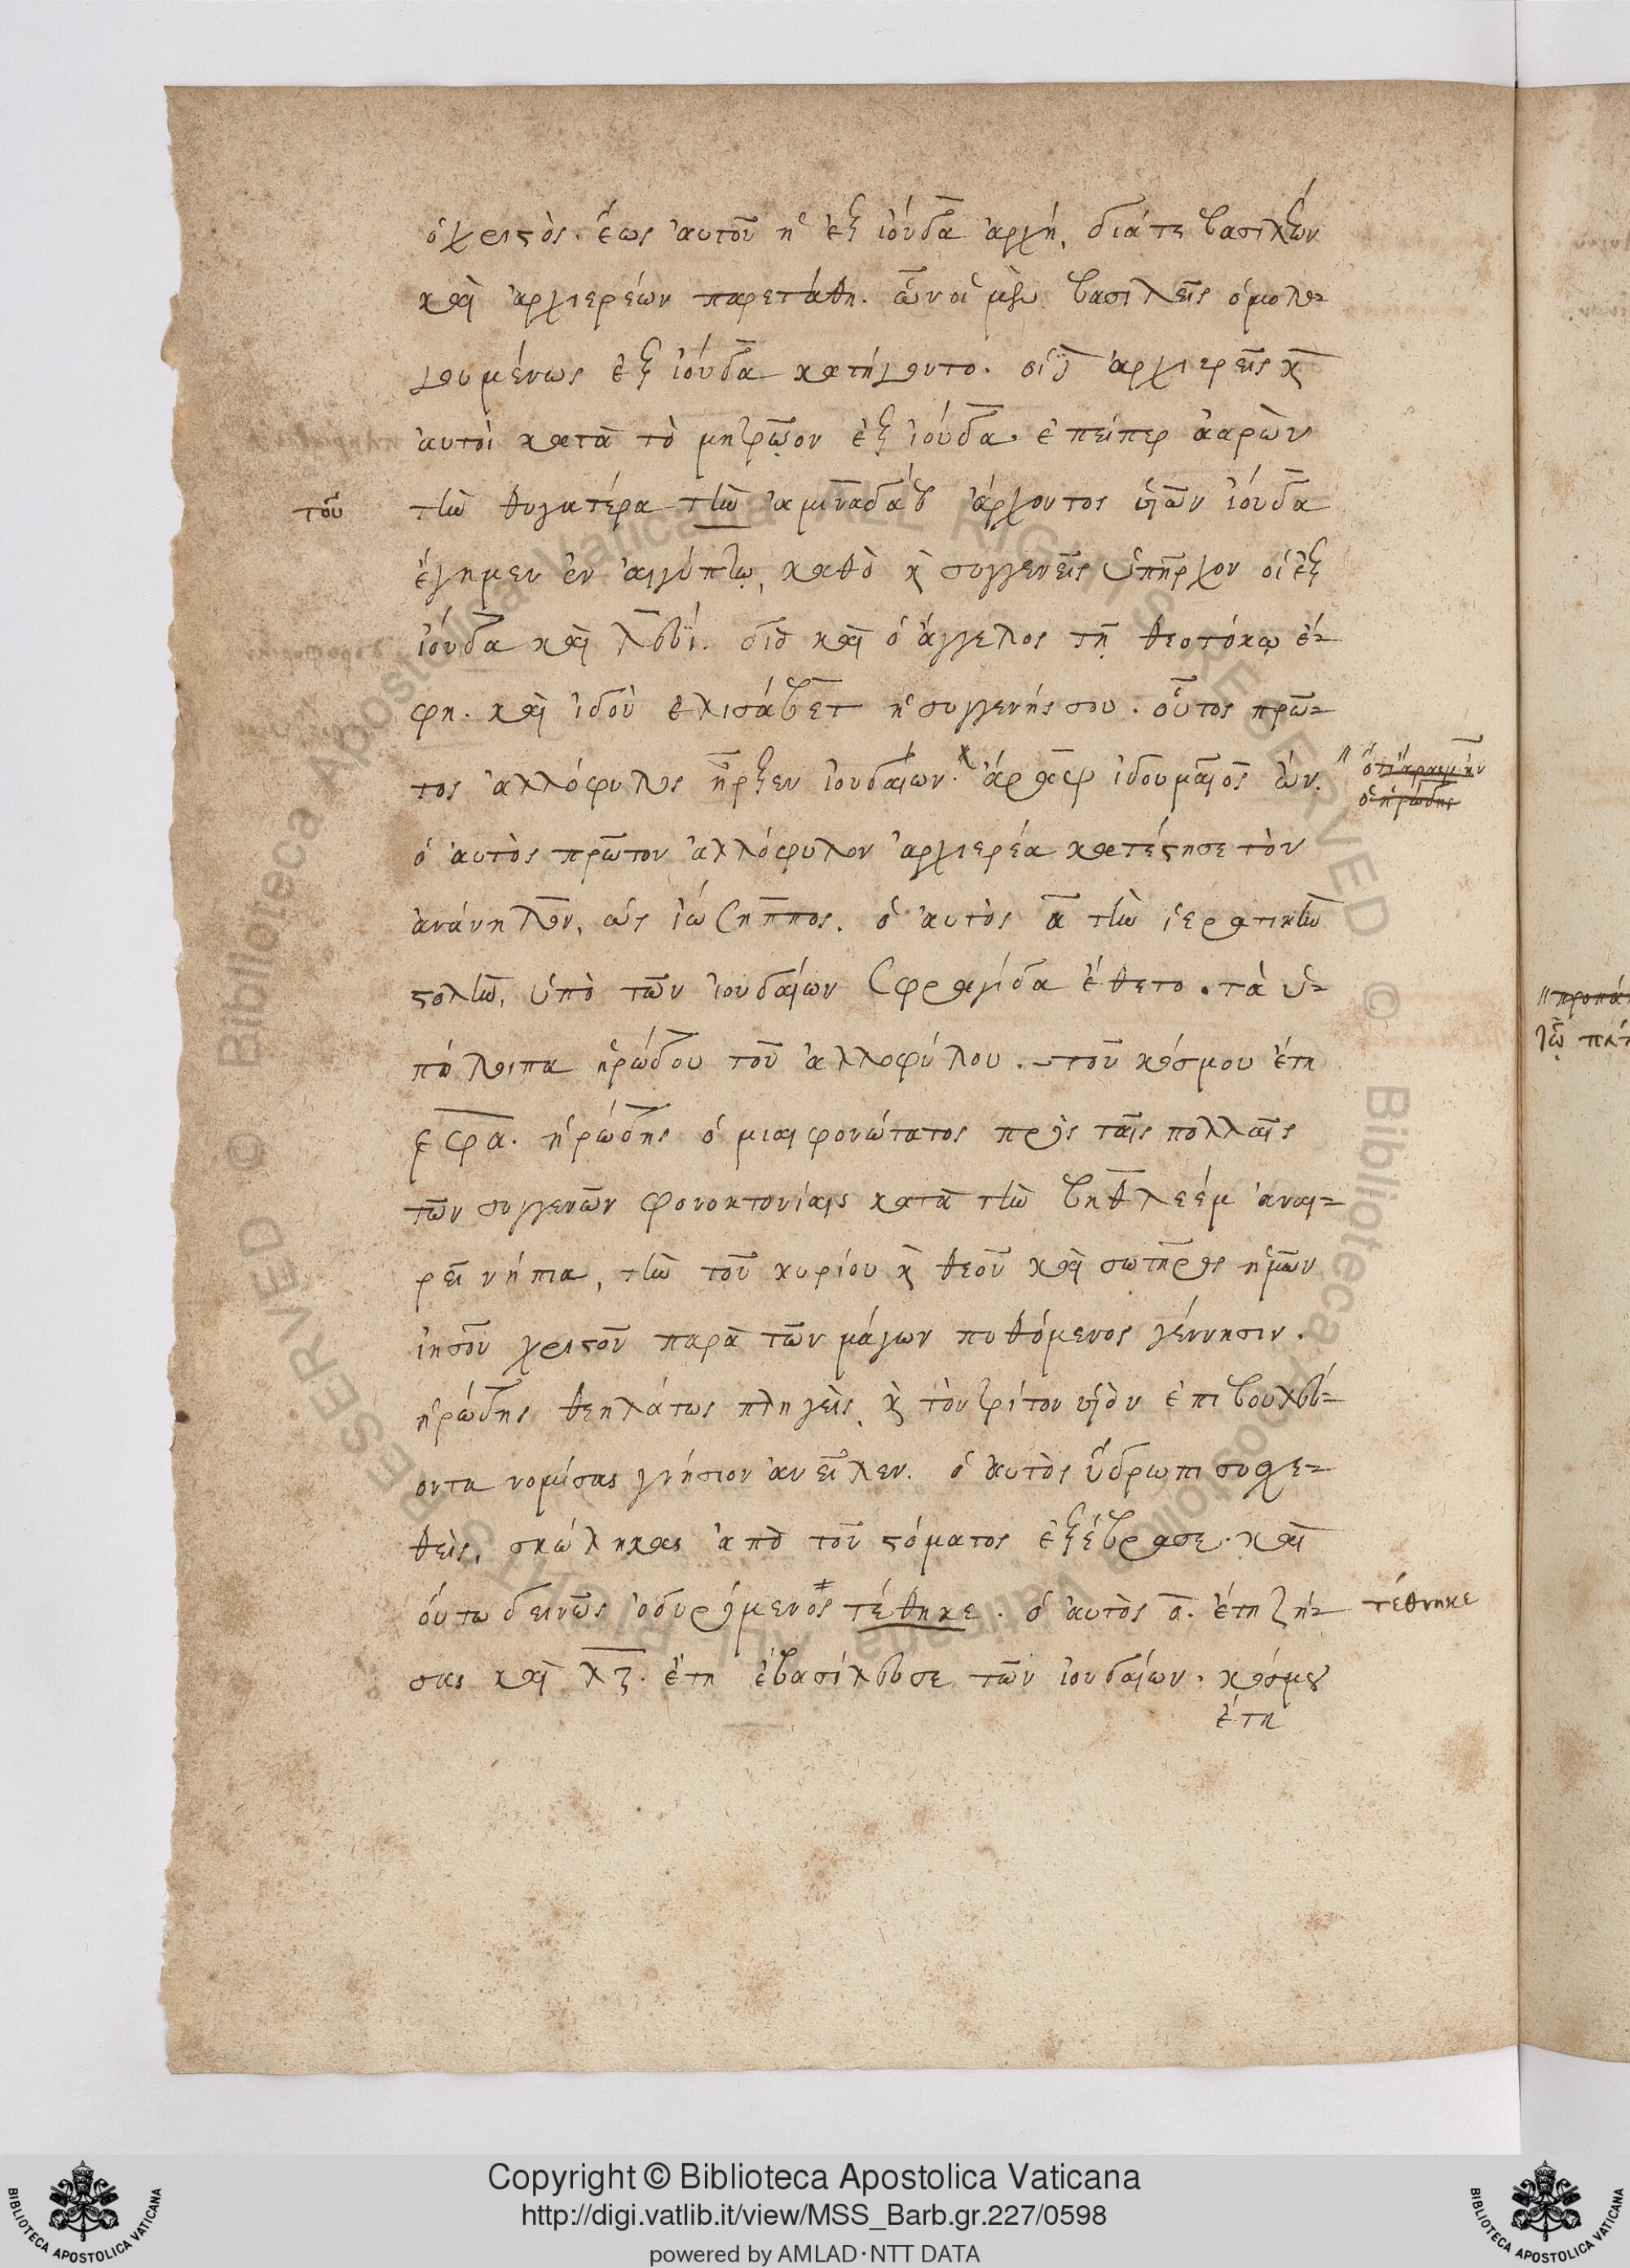 ὁ χριστὸς. ἕως αὐτοῦ ἡ ἐξ ἰούδα ἀρχή, διά τε βασιλέων
καὶ ἀρχιερέων παρετάθη. ὧν οἱ μὲν βασιλεῖς ὁμολο-
γουμένως ἐξ ἰούδα κατήγοντο. οἱ δὲ ἀρχιερεῖς κ
αὐτοὶ κατὰ τὸ μητρῷον ἐξ ἰούδα. ἐπείπερ ἀαρὼν
τοῦ
τὴν θυγατέρα τὴν ἀμιναδάβ ἄρχοντος υἱῶν ἰούδα
ἔγημεν ἐν αἰγύπτῳ, καθὸ κ συγγενεῖς ὑπῆρχον οἱ ἐξ
ἰούδα καὶ λευϊ. διὸ καὶ ὁ ἄγγελος τῇ θεοτόκῳ ἔ-
φη. καὶ ἰδοὺ ἐλισάβετ ἡ συγγενής σου. οὗτος πρῶ-
τος ἀλλόφυλος ἦρξεν ἰουδαίων. ἰδουμαῖος ὤν.
ὁ ἡρώδης
ὁ αὐτὸς πρῶτον ἀλλόφυλον ἀρχιερέα κατέστησε τὸν
ἀνάνηλον, ὡς ἰώσηππος. ὁ αὐτὸς α τὴν ἱερατικὴν
στολὴν, ὑπὸ τῶν ἰουδαίων σφραγίδα ἔθετο. τὰ ὑ-
πόλοιπα ἡρώδου τοῦ ἀλλοφύλου. τοῦ κόσμου ἔτη
͵εφα. ἡρώδης ὁ μιαιφονώτατος πρὸς ταῖς πολλαῖς
τῶν συγγενῶν φονοκτονίαις κατὰ τὴν βηθλεέμ ἀναι-
ρεῖ νήπια, τὴν τοῦ κυρίου κ θεοῦ καὶ σωτῆρος ἡμῶν
ἰησοῦ χριστοῦ παρὰ τῶν μάγων πυθόμενος γέννησιν.
ἡρώδης θεηλάτως πληγεὶς, κ τὸν τρίτον υἱὸν ἐπιβουλεύ-
οντα νομίσας γνήσιον ἀνεῖλεν. ὁ αὐτὸς ὕδρωπι συσχε-
θεὶς, σκώληκας ἀπὸ τοῦ στόματος ἐξέβρασε. καὶ
οὕτω δεινῶς ὀδυρόμενος τέθηκε. ὁ αὐτὸς ο. ἔτη ζή-
τέθνηκε
σας καὶ λζ. ἔτη ἐβασίλευσε τῶν ἰουδαίων. κόσμου
ἔτη
Copyright © Biblioteca Apostolica Vaticana
http://digi.vatlib.it/view/MSS_Barb.gr.227/0598
powered by AMLAD·NTT DATA